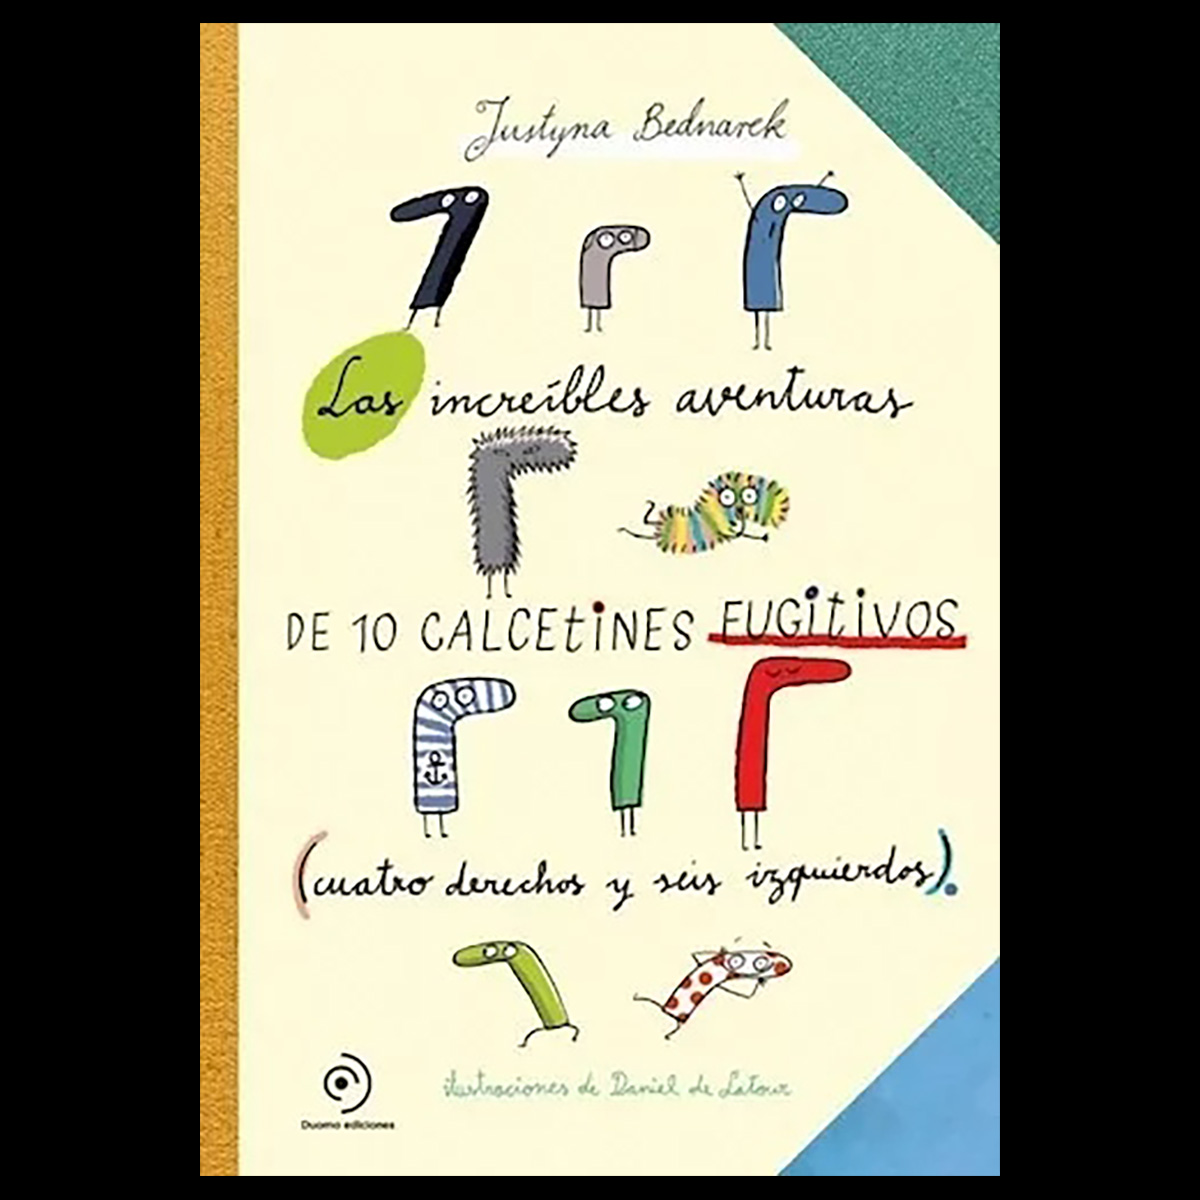 Justyna Bednarek
Las increíbles aventuras
DE 10 CALCEtiNES FUGitiVOS
(cuatro derechos y seis izquierdos).
ilustraciones de Daniel de Latour
Duomo ediciones